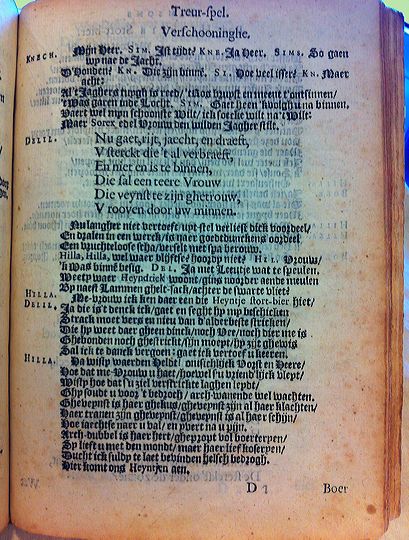 Treur-spel.
Verschooninghe.
KNECH. Mijn Heer. SIM. Ist tijdt? KNE. Ja Heer. SIMS. So gaen
wy nae de Jacht.
D'Honden? KN. Die zijn binnē. SI. Hoe veel isser? KN. Maer
acht:
Al 't Jaghers tuygh is reed/
't Was garen inde Locht. SIM. Gaet heen ick volghu na binnen.
Vaert wel mijn schoonste Wilt/ ick soecke wilt na 't Wilt:
Maer Sorex edel Vrouw den wilden Jagher stilt.
DELIL. Nu gaet, rijt, jaecht, en draeft,
V sterckt die 't al verbraeft,
En niet en is te binnen,
Die sal een teere Vrouw
Die veynst te zijn ghetrouw,
V rooven door uw minnen.
Nu langher niet vertoeft/ upt stel verliest dick voordeel/
En dralen in een werck/ is naer goetdunckens oordeel
Een vruchteloose scha/ verselt met spa berouw.
Hilla, Hilla, wel waer blijfse? hoorjy niet? HIL. Vrouw/
'k Was binnē besig. DEL. Ja met Leentje wat te speulen.
Weetje waer Heyndrick woont/ gins voorder aende meulen
By naest Lammen ghelt-sack/ achter de swarte vliet?
HILLA. Me-vrouw ick ken daer een die Heyntje stort-bier hiet/
DELIL. Ja die is't denck ick/ gaet en seght hy my beschicken
Strack moet vers en nieu van d'alderbeste stricken/
Die hy weet daer gheen dinck/ noch Vee/ noch dier me is
Ghebonden noch ghestrickt/ sijn moeyt/ hy zijt ghewis
Sal ick te danck vergoen: gaet ick vertoef u keeren.
HILLA. Ha wispy waerden Heldt! onsichlijck Vorst en Heere/
Hoe dat me Vrouw u haet/ hoewel s'u vriendlijck vleyt/
Wispy hoe dat s'u ziel verstrickte laghen leydt/
Ghy soudt u voor 't bedroch/ arch-wanende wel wachten.
Gheveynst is haer ghekus/ gheveynst zijn al haer klachten/
Haer tranen zijn gheveynst/ gheveynst is al haer schijn/
Hoe jaechtse naer u val/ en yvert na u pijn.
Arch-dubbel is haer hert/ ghepropt vol boerteryen/
Sy lieft u met den mondt/ maer haer lief
Ducht ick suldy te laet bevinden helsch bedrogh.
Hier komt ons Heyntjen aen.
D
Boer